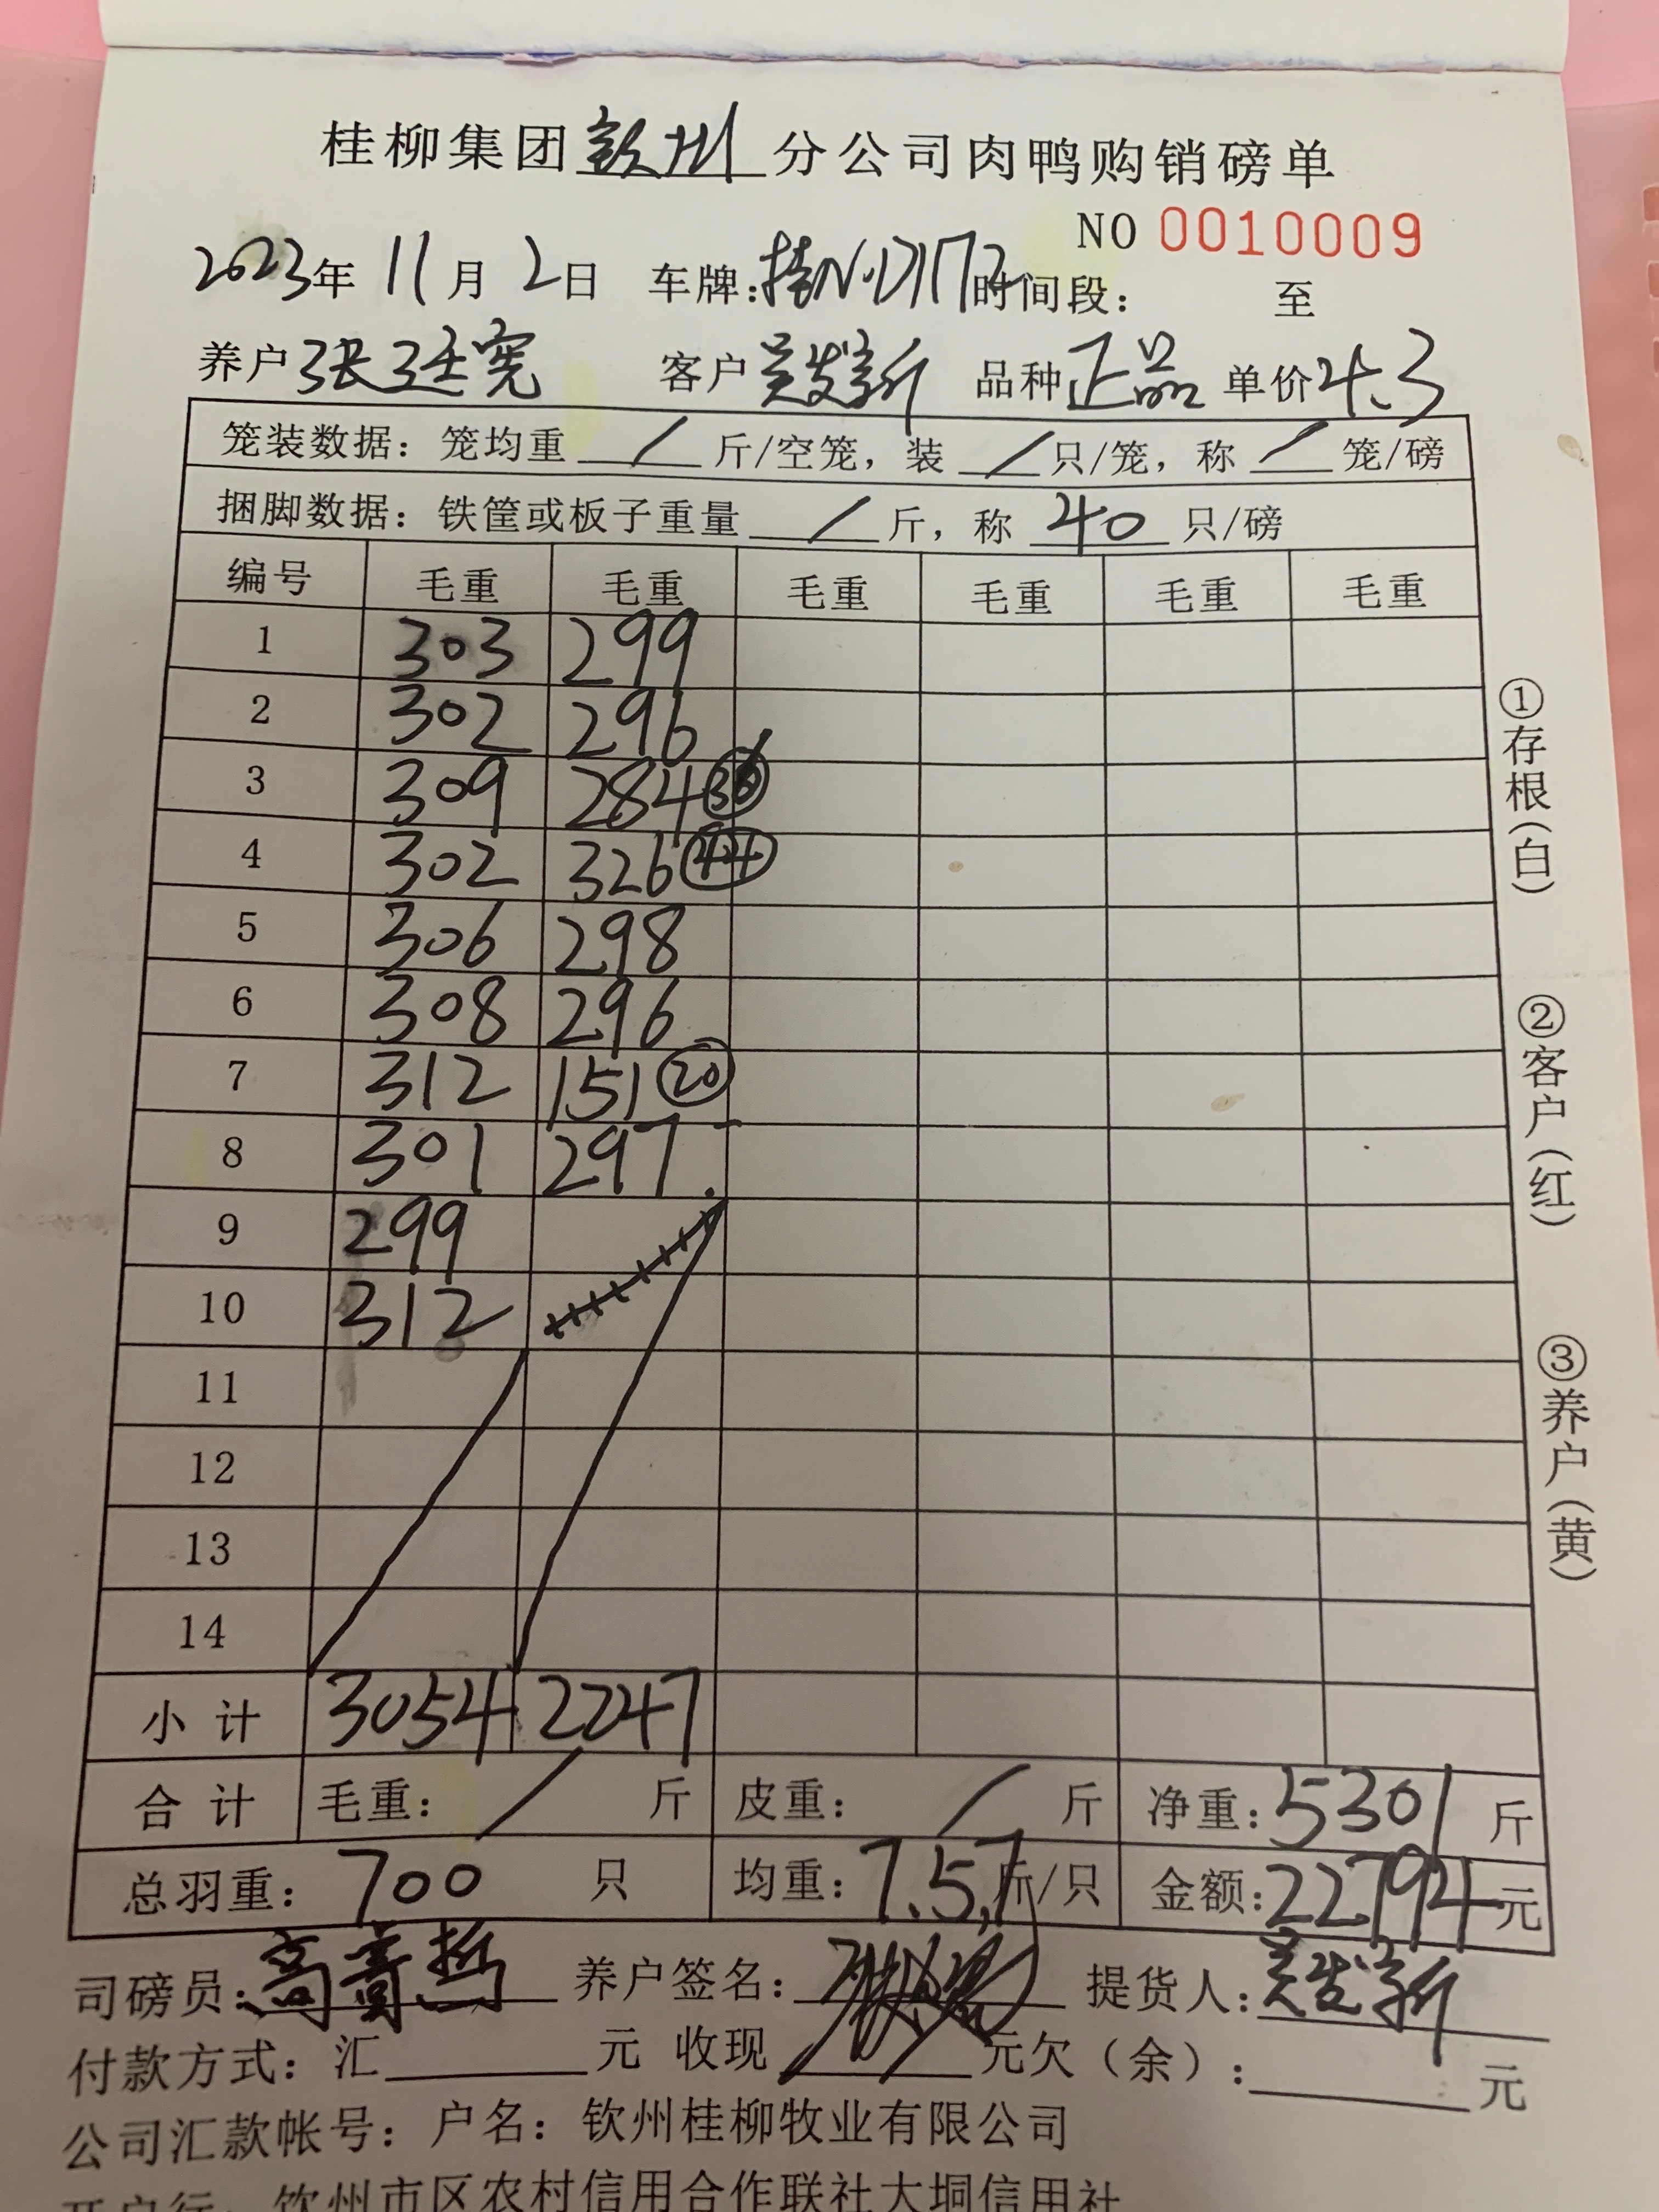 桂柳集团钦州分公司肉鸭购销磅单
NO 0010009
2023年 11月 2日 车牌:桂N·D1172 时间段: 至
养户 张廷宪 客户 吴发新 品种 正品 单价 4.3
笼装数据: 笼均重 / 斤/空笼, 装 / 只/笼, 称 / 笼/磅
捆脚数据: 铁筐或板子重量 / 斤, 称 40 只/磅
编号 毛重 毛重 毛重 毛重 毛重 毛重
1 303 299
2 302 296
3 309 284 36
4 302 326 44
5 306 298
6 308 296
7 312 151 20
8 301 297
9 299
10 312
11
12
13
14
小计 3054 2247
合计 毛重: / 斤 皮重: / 斤 净重: 5301 斤
总羽重: 700 只 均重: 7.57 斤/只 金额: 22794 元
司磅员: 高 哲 养户签名: 提货人: 吴发新
付款方式: 汇 元 收现 元 欠(余): 元
公司汇款帐号: 户名: 钦州桂柳牧业有限公司
开户行: 钦州市区农村信用合作联社大垌信用社
①存根(白)
②客户(红)
③养户(黄)